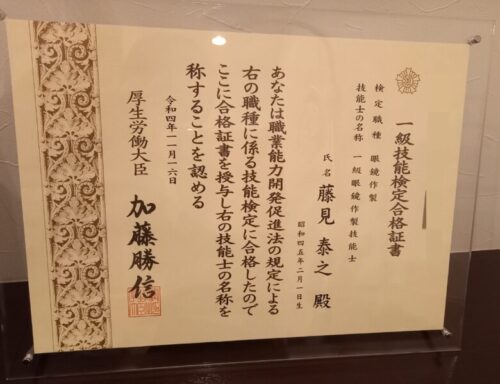 一級技能検定合格証書
検定職種 眼鏡作製
技能士の名称 一級眼鏡作製技能士
氏名 藤見泰之 殿
昭和四五年二月一日生
あなたは職業能力開発促進法の規定による
右の職種に係る技能検定に合格したので
ここに合格証書を授与し右の技能士の名称を
称することを認める
令和四年一一月一六日
厚生労働大臣 加藤勝信